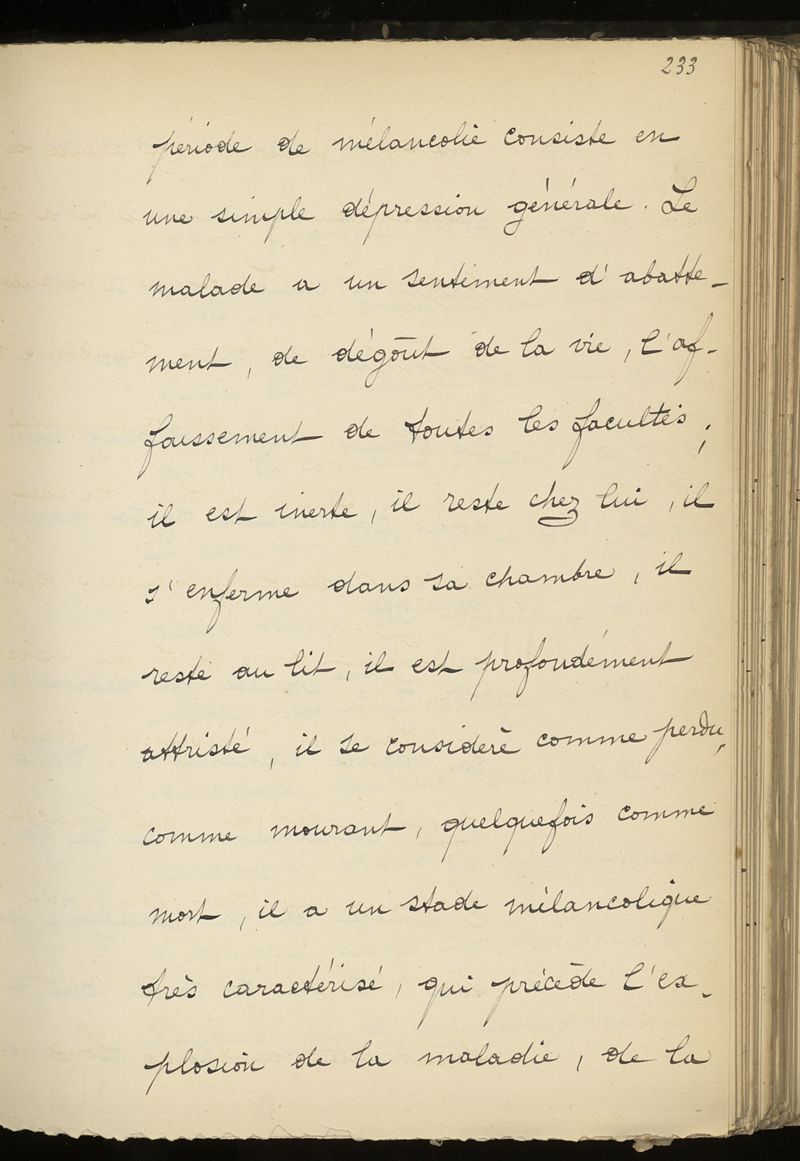 233
période de mélancolie consiste en
une simple dépression générale. Le
malade a un sentiment d'abatte-
ment, de dégoût de la vie, l'af-
faissement de toutes les facultés,
il est inerte, il reste chez lui, il
s'enferme dans sa chambre, il
reste au lit, il est profondément
attristé, il se considère comme perdu,
comme mourant, quelquefois comme
mort, il a un stade mélancolique
très caractérisé, qui précède l'ex-
plosion de la maladie, de la